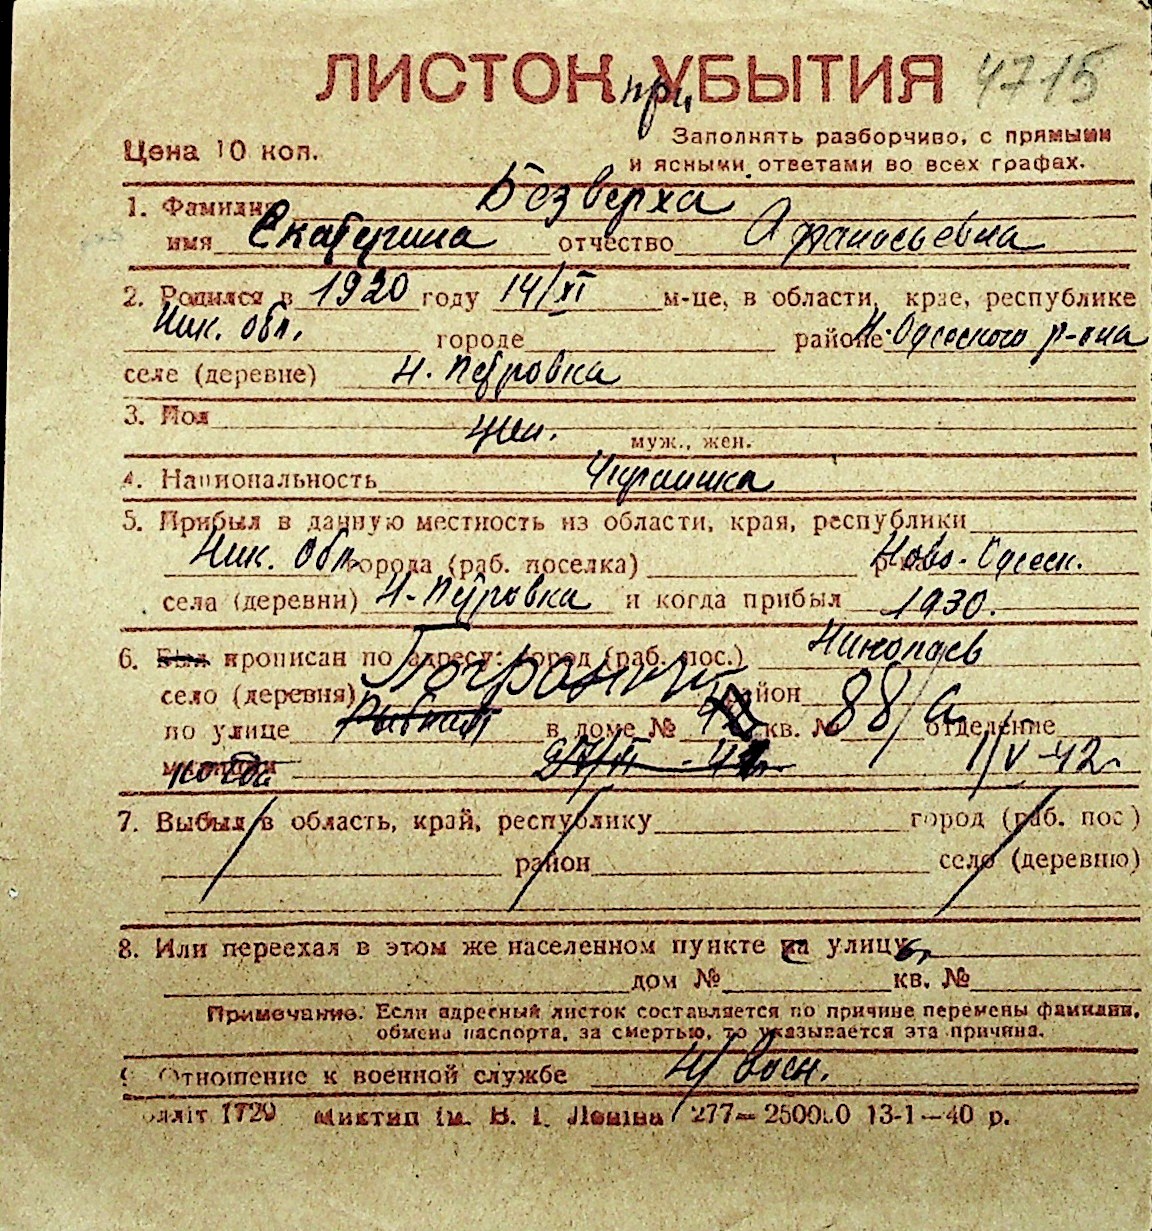 ЛИСТОК при УБЫТИЯ 4715
Цена 10 коп. Заполнять разборчиво, с прямыми
и ясными ответами во всех графах.
1. Фамилия Безверха
имя Екатерина отчество Афанасьевна
2. Родился в 1920 году 14/XI м-це, в области, крае, республике
Ник. обл. городе районе Н-Одесского р-она
селе (деревне) Н. Петровка
3. Пол жен. муж., жен.
4. Национальность Украинка
5. Прибыл в данную местность из области, края, республики
Ник. Обл. города (раб. поселка) Ново-Одесск.
села (деревни) Н-Петровка и когда прибыл 1930.
6. Был прописан по адресу: город (раб. пос.) Николаев
село (деревня) район
по улице в доме № кв. № 88/а отделение
когда 1/V-42г.
7. Выбыл в область, край, республику город (раб. пос)
район село (деревню)
8. Или переехал в этом же населенном пункте на улицу
дом № кв. №
Примечание. Если адресный листок составляется по причине перемены фамилии,
обмена паспорта, за смертью, то указывается эта причина.
9. Отношение к военной службе Н/Воен.
1720 Миктип ім. В. І. Леніна 277— 250000 13-1—40 р.